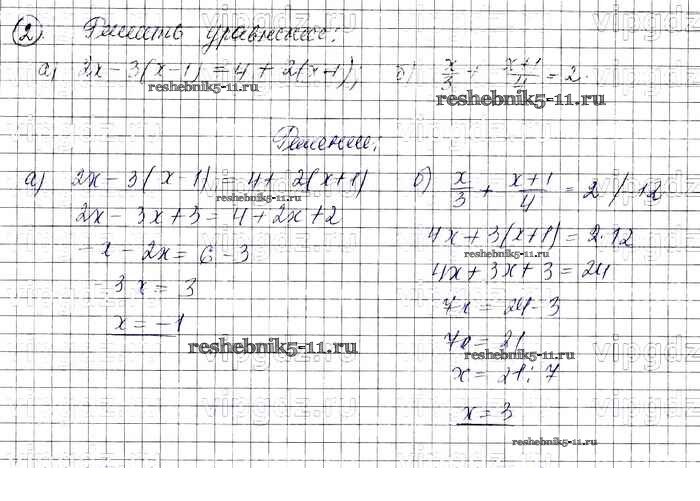 2). Решить уравнение:
а) 2x - 3(x-1) = 4 + 2(x+1); б) x/3 + (x+1)/4 = 2.
reshebnik5-11.ru
reshebnik5-11.ru
Решение:
а) 2x - 3(x-1) = 4 + 2(x+1)
reshebnik5-11.ru
2x - 3x + 3 = 4 + 2x + 2
-x - 2x = 6 - 3
-3x = 3
x = -1
reshebnik5-11.ru
б) x/3 + (x+1)/4 = 2 /·12
4x + 3(x+1) = 2·12
reshebnik5-11.ru
4x + 3x + 3 = 24
7x = 24 - 3
7x = 21
reshebnik5-11.ru
x = 21:7
x = 3
reshebnik5-11.ru
vipgdz.ru